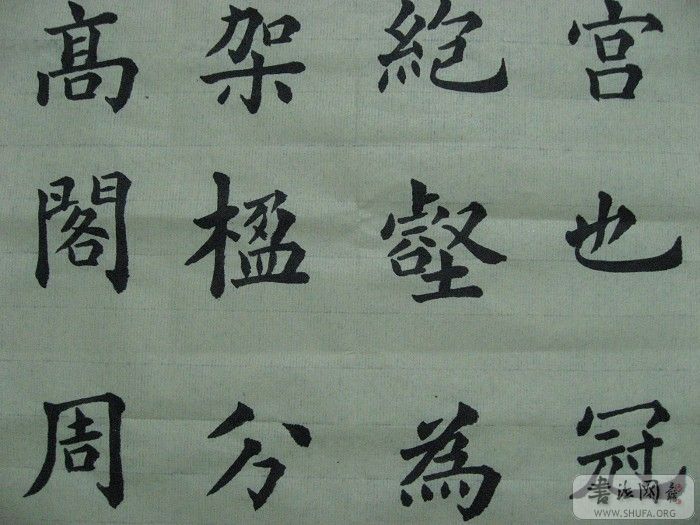 宫也冠
絶壑為
架楹分
髙閣周
書法网
WWW.SHUFA.ORG